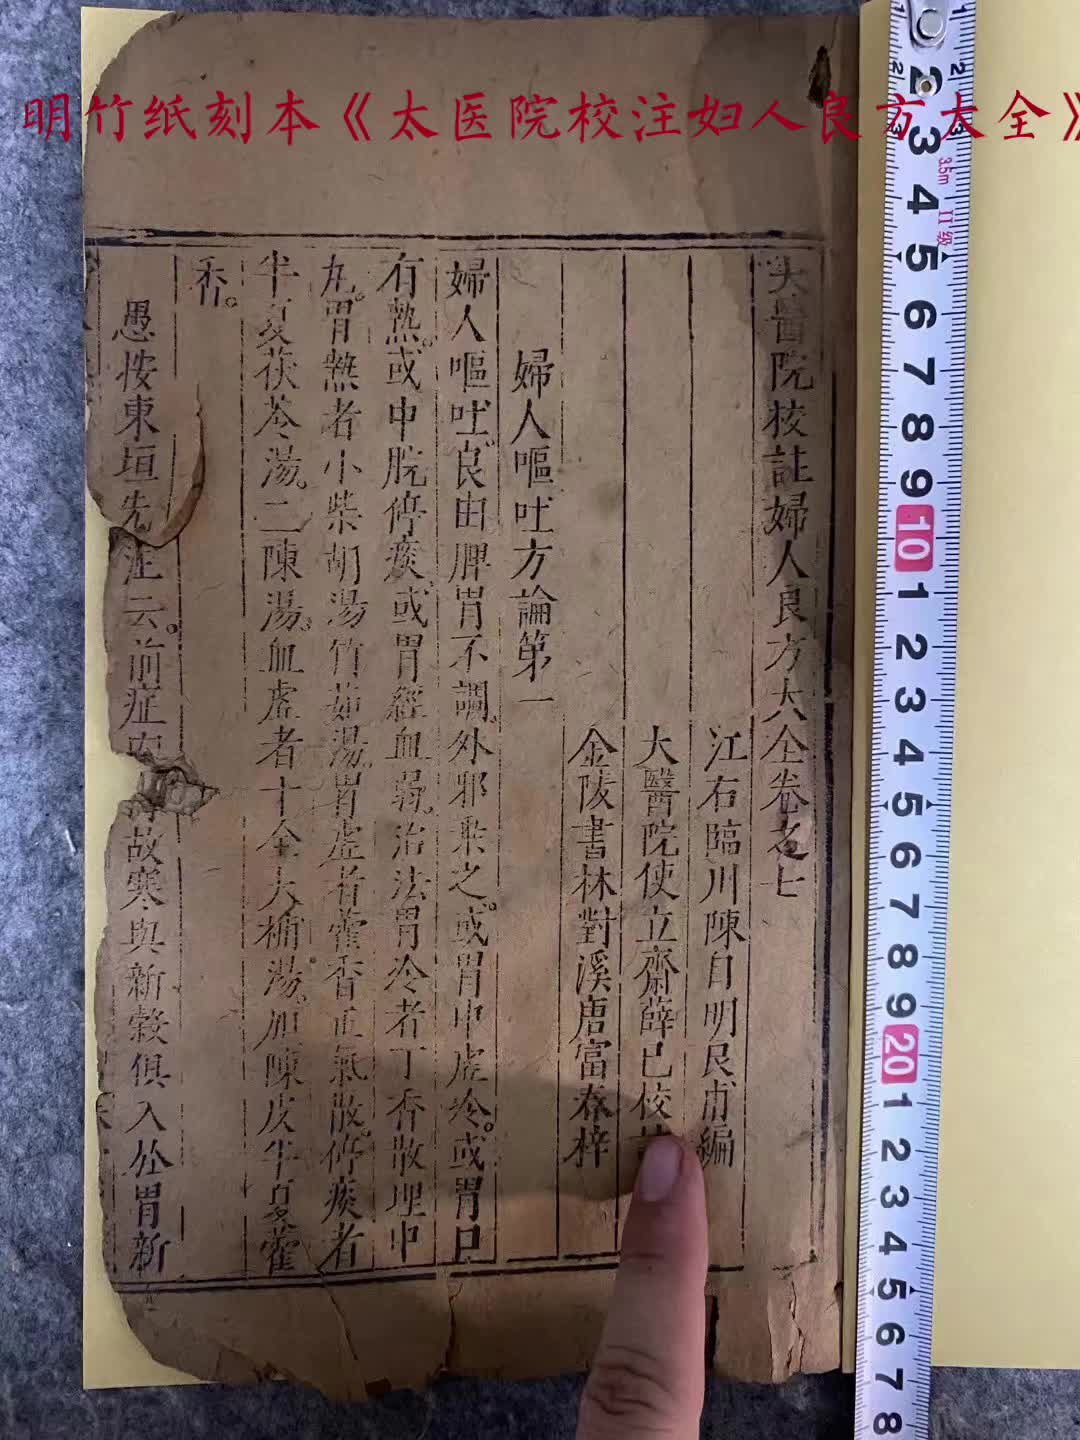 明竹纸刻本《太医院校注妇人良方大全》
太醫院校註婦人良方大全卷之七
江右臨川陳自明良甫編
大醫院使立齋薛已校
金陵書林對溪唐富春梓
婦人嘔吐方論第一
婦人嘔吐良由脾胃不調。外邪乘之。或胃中虛冷。或胃口
有熱。或中脘停痰。或胃經血弱。治法胃冷者丁香散理中
丸。胃熱者小柴胡湯竹茹湯。胃虛者藿香正氣散。停痰者
半夏茯苓湯。二陳湯。血虛者十全大補湯。加陳皮半夏藿
香。
愚按東垣先生云。前症因 故寒與新穀俱入於胃新
3.5m
II级
1 2 3 4 5 6 7 8 9 10 1 2 3 4 5 6 7 8 9 20 1 2 3 4 5 6 7 8